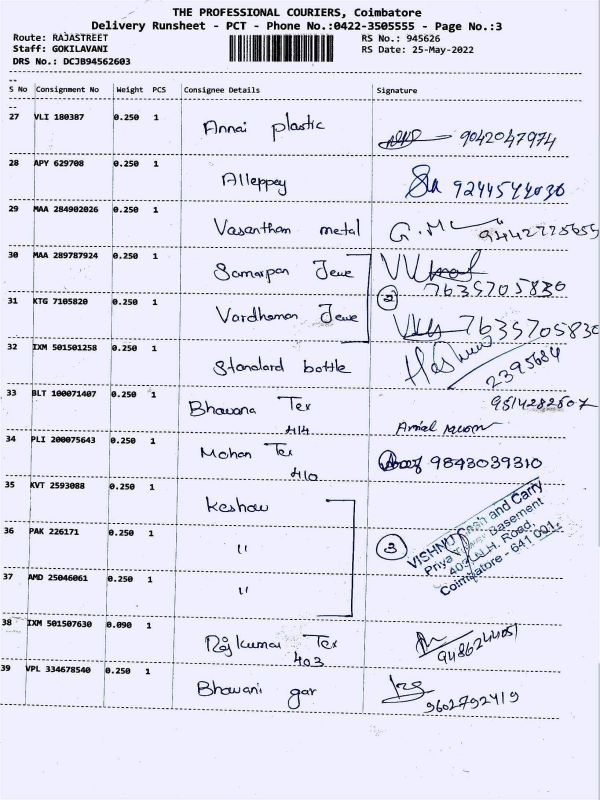 THE PROFESSIONAL COURIERS, Coimbatore
Delivery Runsheet - PCT - Phone No.:0422-3505555 - Page No.:3
Route: RAJASTREET RS No.: 945626
Staff: GOKILAVANI RS Date: 25-May-2022
DRS No.: DCJB94562603
S No Consignment No Weight PCS Consignee Details Signature
27 VLI 180387 0.250 1 Annai plastic 9042047974
28 APY 629708 0.250 1 Alleppey 9244544030
29 MAA 284902026 0.250 1 Vasantham metal G.M
30 MAA 289787924 0.250 1 Samarpan Jewe 7635705830
2
31 KTG 7105820 0.250 1 Vardhaman Jewe 7635705830
32 IXM 501501258 0.250 1 Standard bottle 2395684
33 BLT 100071407 0.250 1 Bhavana Tex 9514282507
414
34 PLI 200075643 0.250 1 Mohan Tex 9843039310
410
35 KVT 2593088 0.250 1 Keshav
36 PAK 226171 0.250 1 "
3
37 AMD 25046061 0.250 1 "
VISHNU Cash and Carry
Priya Tower Basement
403, N.H. Road,
Coimbatore - 641 001.
38 IXM 501507630 0.090 1 Raj Kumar Tex
403
39 VPL 334678540 0.250 1 Bhavani gar 9602792419